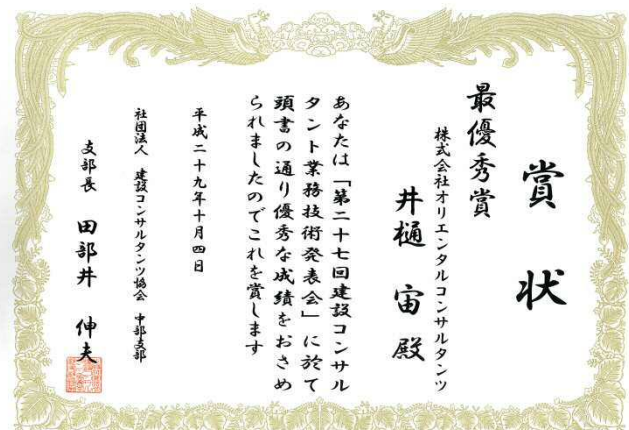 賞状
最優秀賞
株式会社オリエンタルコンサルタンツ
井樋 宙 殿
あなたは「第二十七回建設コンサル
タント業務技術発表会」に於て
頭書の通り優秀な成績をおさめ
られましたのでこれを賞します
平成二十九年十月四日
社団法人 建設コンサルタンツ協会 中部支部
支部長 田部井 伸夫